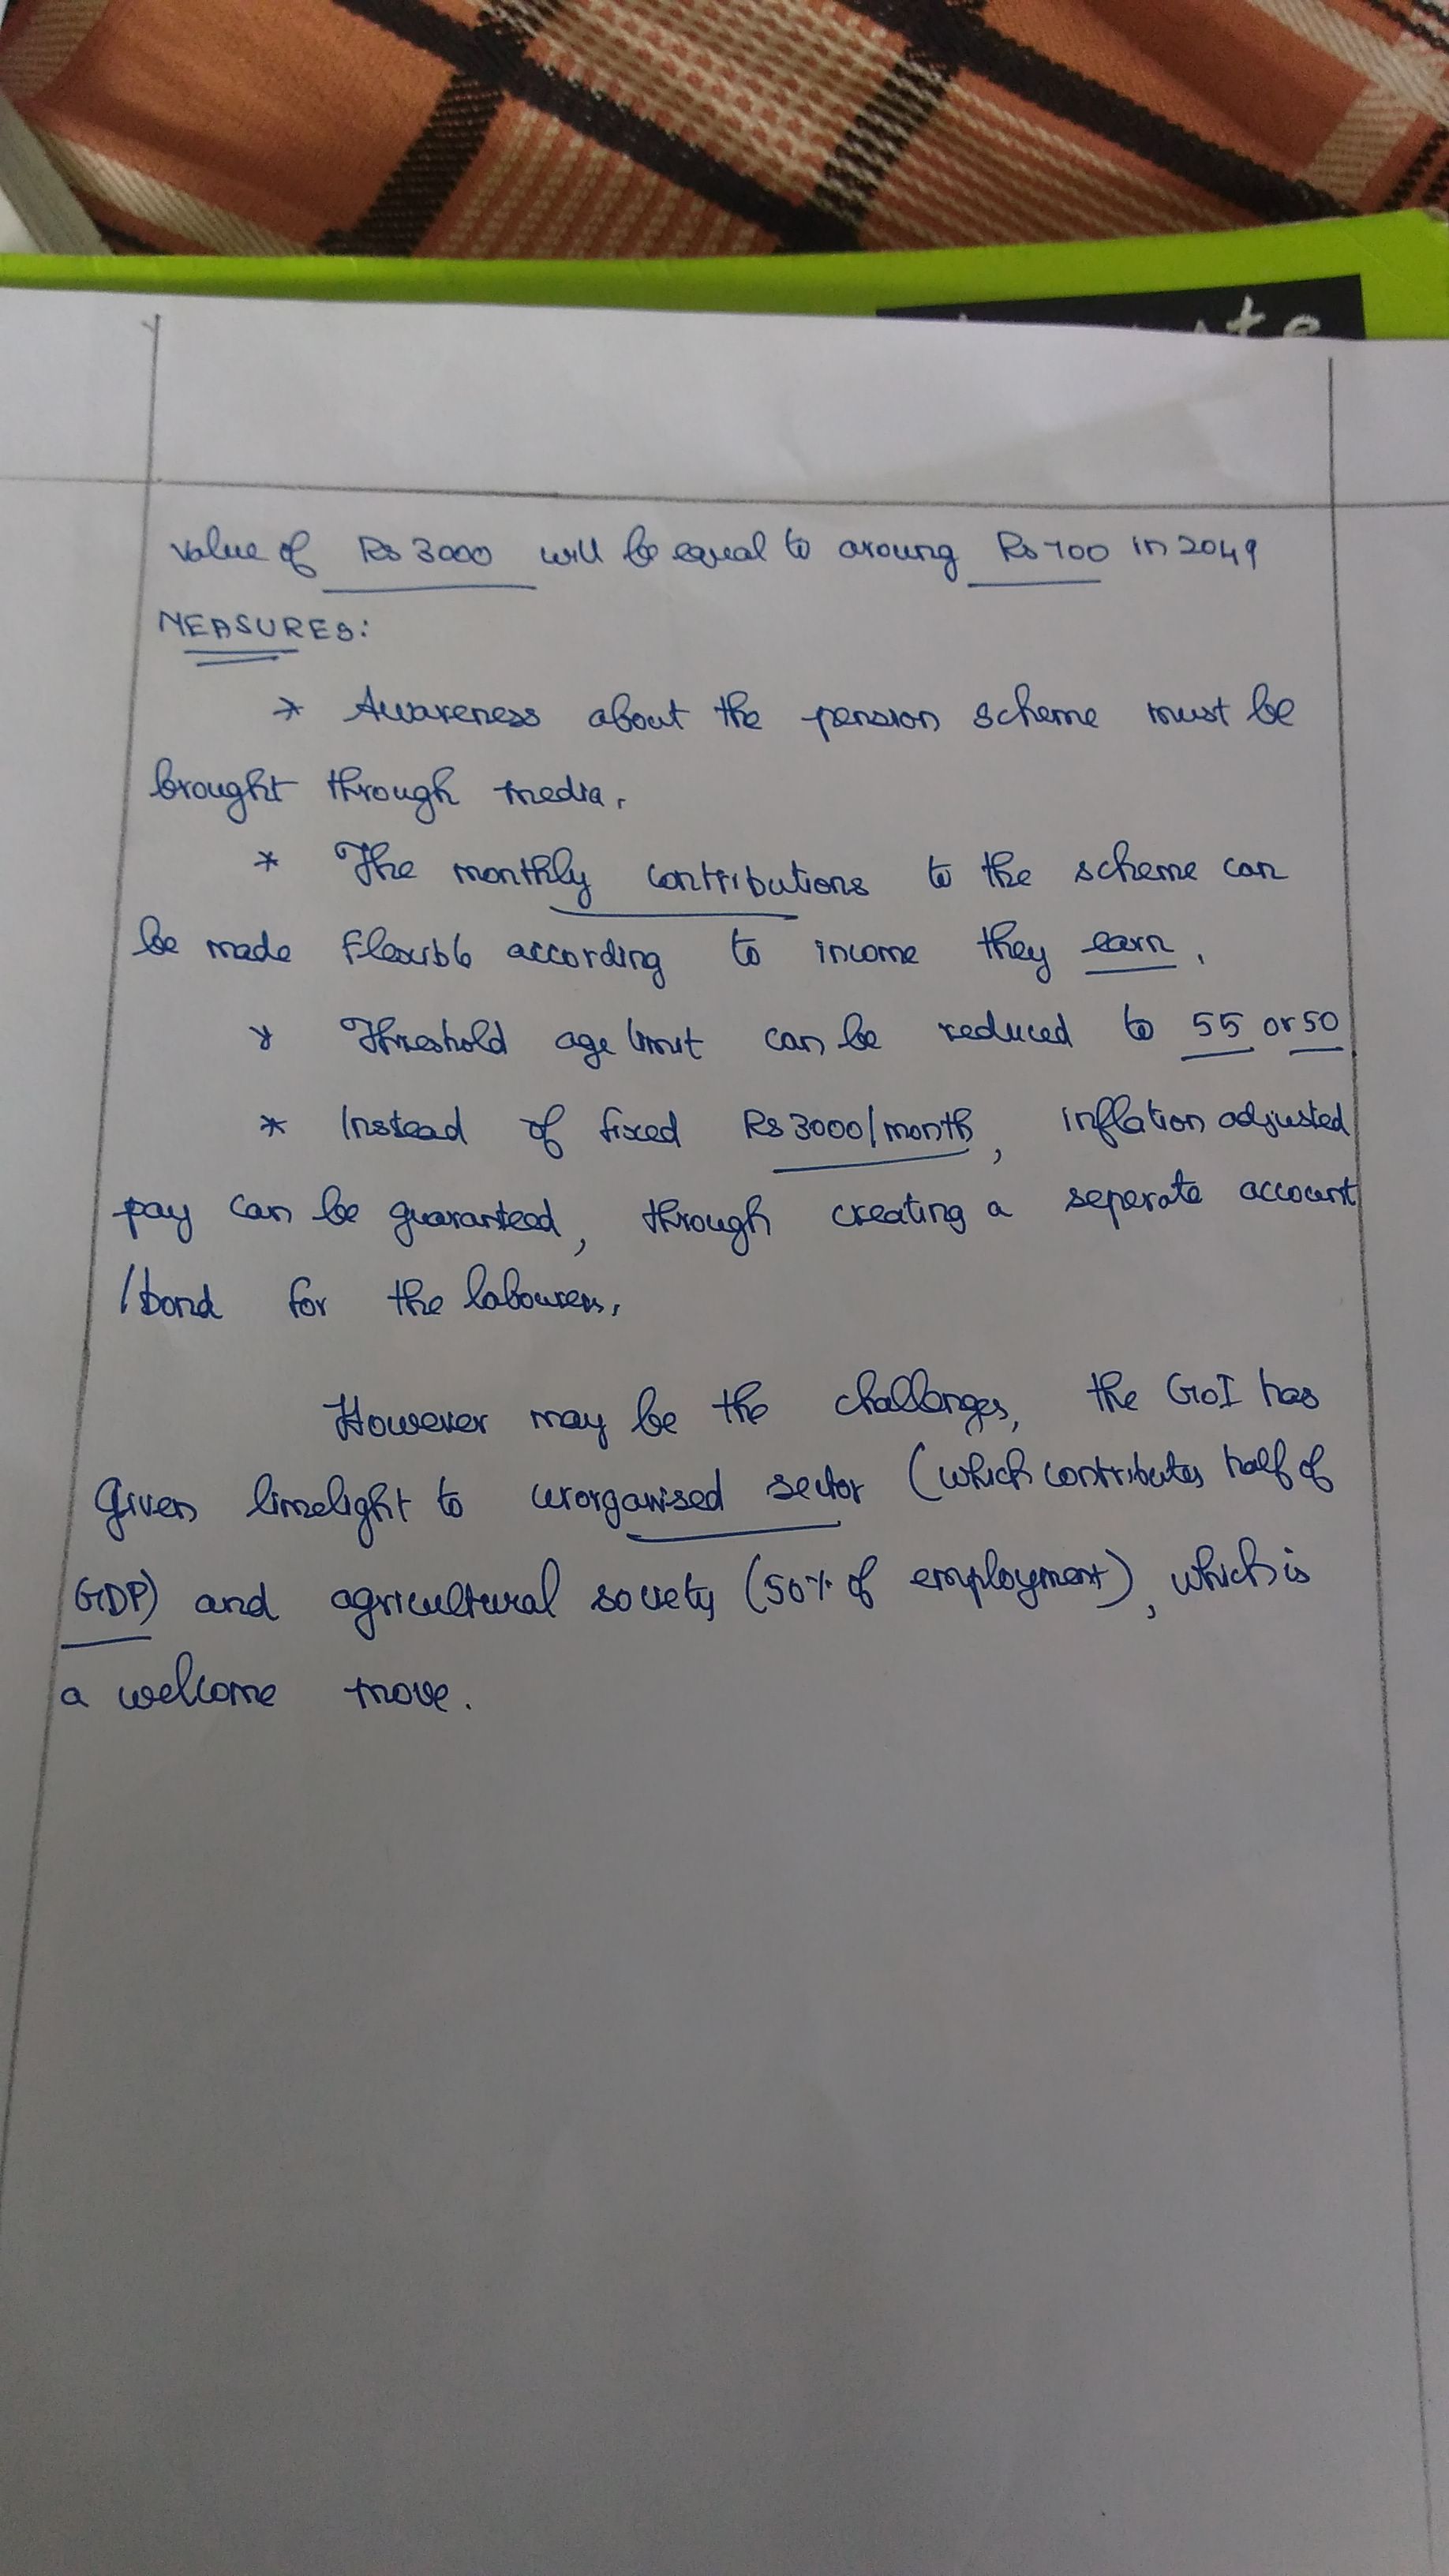 value of Rs 3000 will be equal to aroung Rs 700 in 2049
MEASURES:
* Awareness about the pension scheme must be
brought through media.
* The monthly contributions to the scheme can
be made flexible according to income they earn.
* Threshold age limit can be reduced to 55 or 50
* Instead of fixed Rs 3000/month, inflation adjusted
pay can be guaranteed, through creating a seperate account
/bond for the labourers.
However may be the challenges, the GoI has
given limelight to unorganised sector (which contributes half of
GDP) and agricultural society (50% of employment), which is
a welcome move.